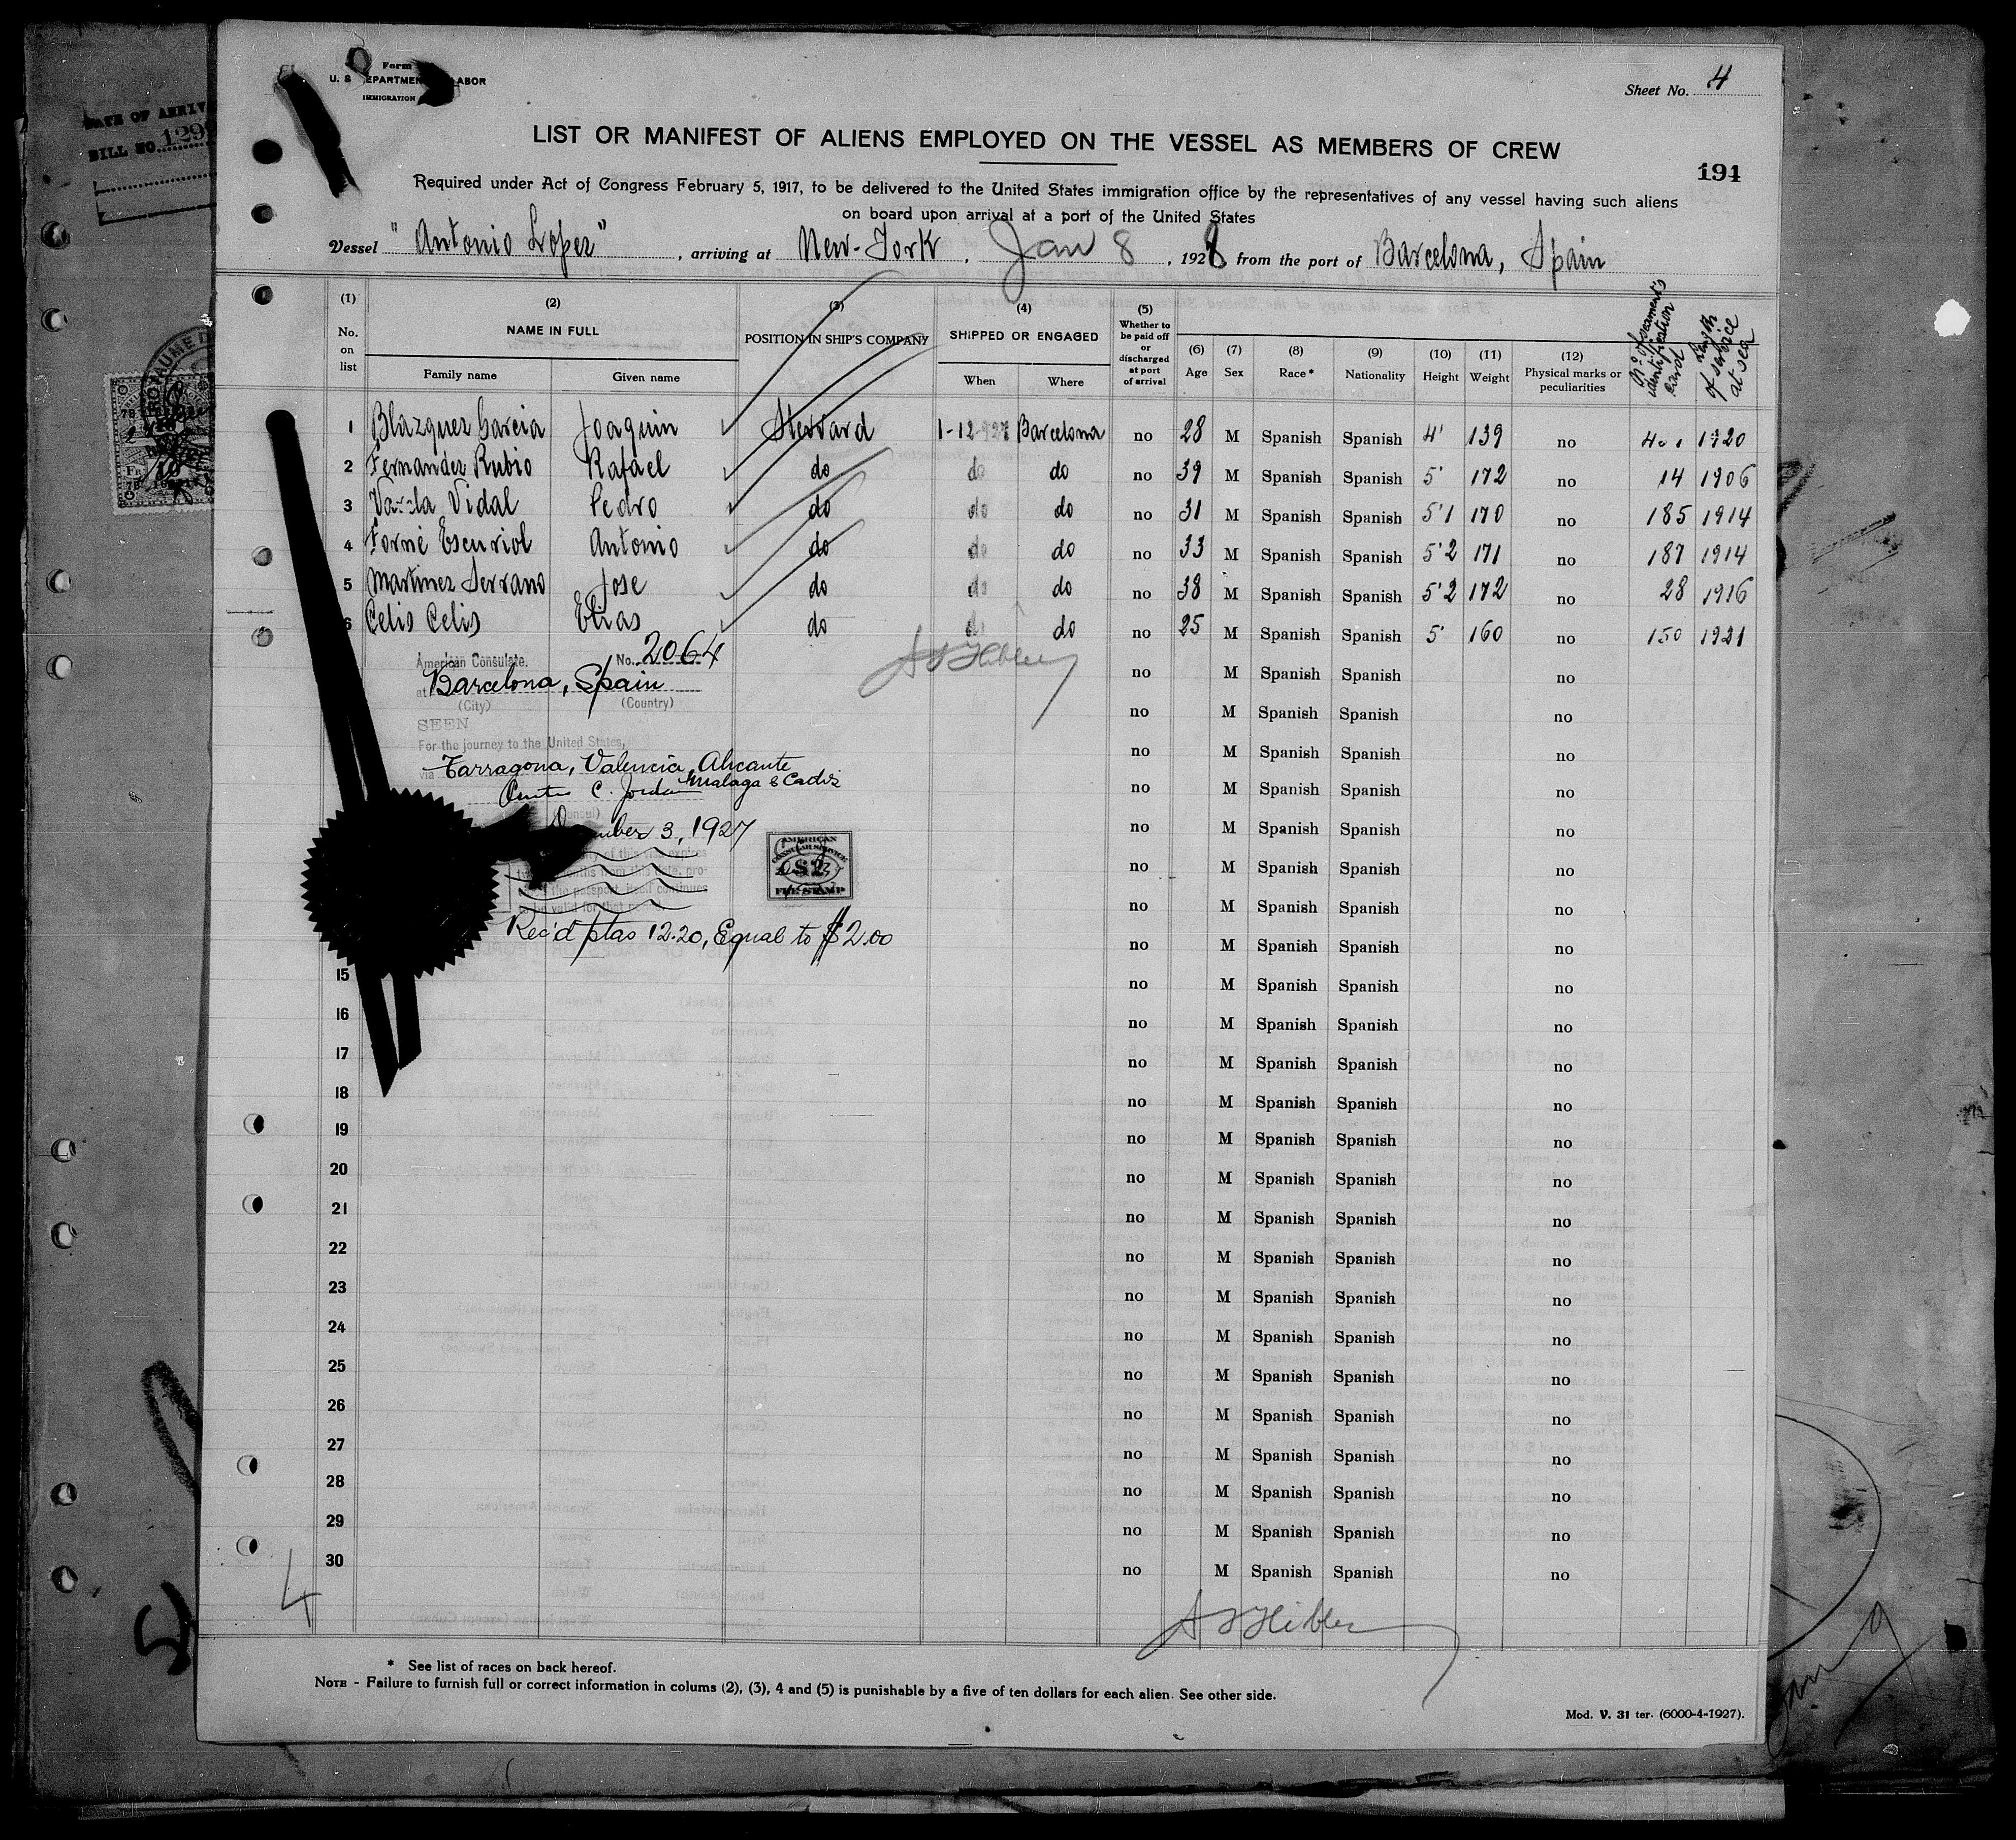 Form
U. S. DEPARTMEN ABOR
IMMIGRATION
Sheet No. 4
DATE OF ARRIV
BILL NO. 129
LIST OR MANIFEST OF ALIENS EMPLOYED ON THE VESSEL AS MEMBERS OF CREW
191
Required under Act of Congress February 5, 1917, to be delivered to the United States immigration office by the representatives of any vessel having such aliens
on board upon arrival at a port of the United States
Vessel "Antonio Lopez", arriving at New-York, Jan 8, 1928 from the port of Barcelona, Spain
(1) No. on list (2) NAME IN FULL Family name Given name (3) POSITION IN SHIP'S COMPANY (4) SHIPPED OR ENGAGED When Where (5) Whether to be paid off or discharged at port of arrival (6) Age (7) Sex (8) Race* (9) Nationality (10) Height (11) Weight (12) Physical marks or peculiarities Nº of seament's identification card Length of service at sea
1 Blazquez Garcia Joaquin Steward 1-12-927 Barcelona no 28 M Spanish Spanish 4' 139 no 1920
2 Fernandez Rubio Rafael do do do no 39 M Spanish Spanish 5' 172 no 14 1906
3 Vidal Pedro do do do no 31 M Spanish Spanish 5'1 170 no 185 1914
4 Forné Escuriol Antonio do do do no 33 M Spanish Spanish 5'2 171 no 187 1914
5 Martinez Serrano Jose do do do no 38 M Spanish Spanish 5'2 172 no 28 1916
6 Celis Celis Elias do do do no 25 M Spanish Spanish 5' 160 no 150 1921
American Consulate. No. 2064
at Barcelona, Spain
(City) (Country)
SEEN
For the journey to the United States,
via Tarragona, Valencia, Alicante
Malaga & Cadiz
C. Jordan
mber 3, 1927
of this visa expires
months from this date, pro-
the passport itself continues
to be valid for that
AMERICAN CONSULAR SERVICE $2 FEE STAMP
Rec'd ptas 12.20, Equal to $2.00
no M Spanish Spanish no
no M Spanish Spanish no
no M Spanish Spanish no
no M Spanish Spanish no
no M Spanish Spanish no
no M Spanish Spanish no
no M Spanish Spanish no
no M Spanish Spanish no
15 no M Spanish Spanish no
16 no M Spanish Spanish no
17 no M Spanish Spanish no
18 no M Spanish Spanish no
19 no M Spanish Spanish no
20 no M Spanish Spanish no
21 no M Spanish Spanish no
22 no M Spanish Spanish no
23 no M Spanish Spanish no
24 no M Spanish Spanish no
25 no M Spanish Spanish no
26 no M Spanish Spanish no
27 no M Spanish Spanish no
28 no M Spanish Spanish no
29 no M Spanish Spanish no
30 no M Spanish Spanish no
4
* See list of races on back hereof.
NOTE - Failure to furnish full or correct information in colums (2), (3), 4 and (5) is punishable by a five of ten dollars for each alien. See other side.
Mod. V. 31 ter. (6000-4-1927).